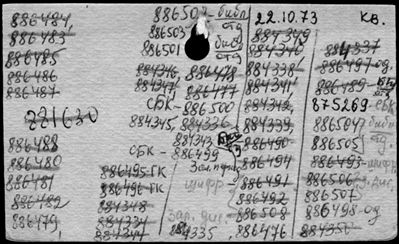 886484,
886483
886485
886486
886487
886488
886480
886481
886482
886479,
886502-библ
886503
отд
886501
884346, 886478
884347, 886477
СБК- 886500
884345, 884336
884343
СБК- 886499
886495-ГК
886496-ГК
884348
884334
884344
884335
22.10.73 Кв.
884349
884340
884338
884341
884342,
884339,
886490-
886494
886491
886492
886508
886476
884337
886497-од.
886489-
875269-СБК
886504-библ
886505
отд
886493-шифр
886506
886507
886498-од
884350